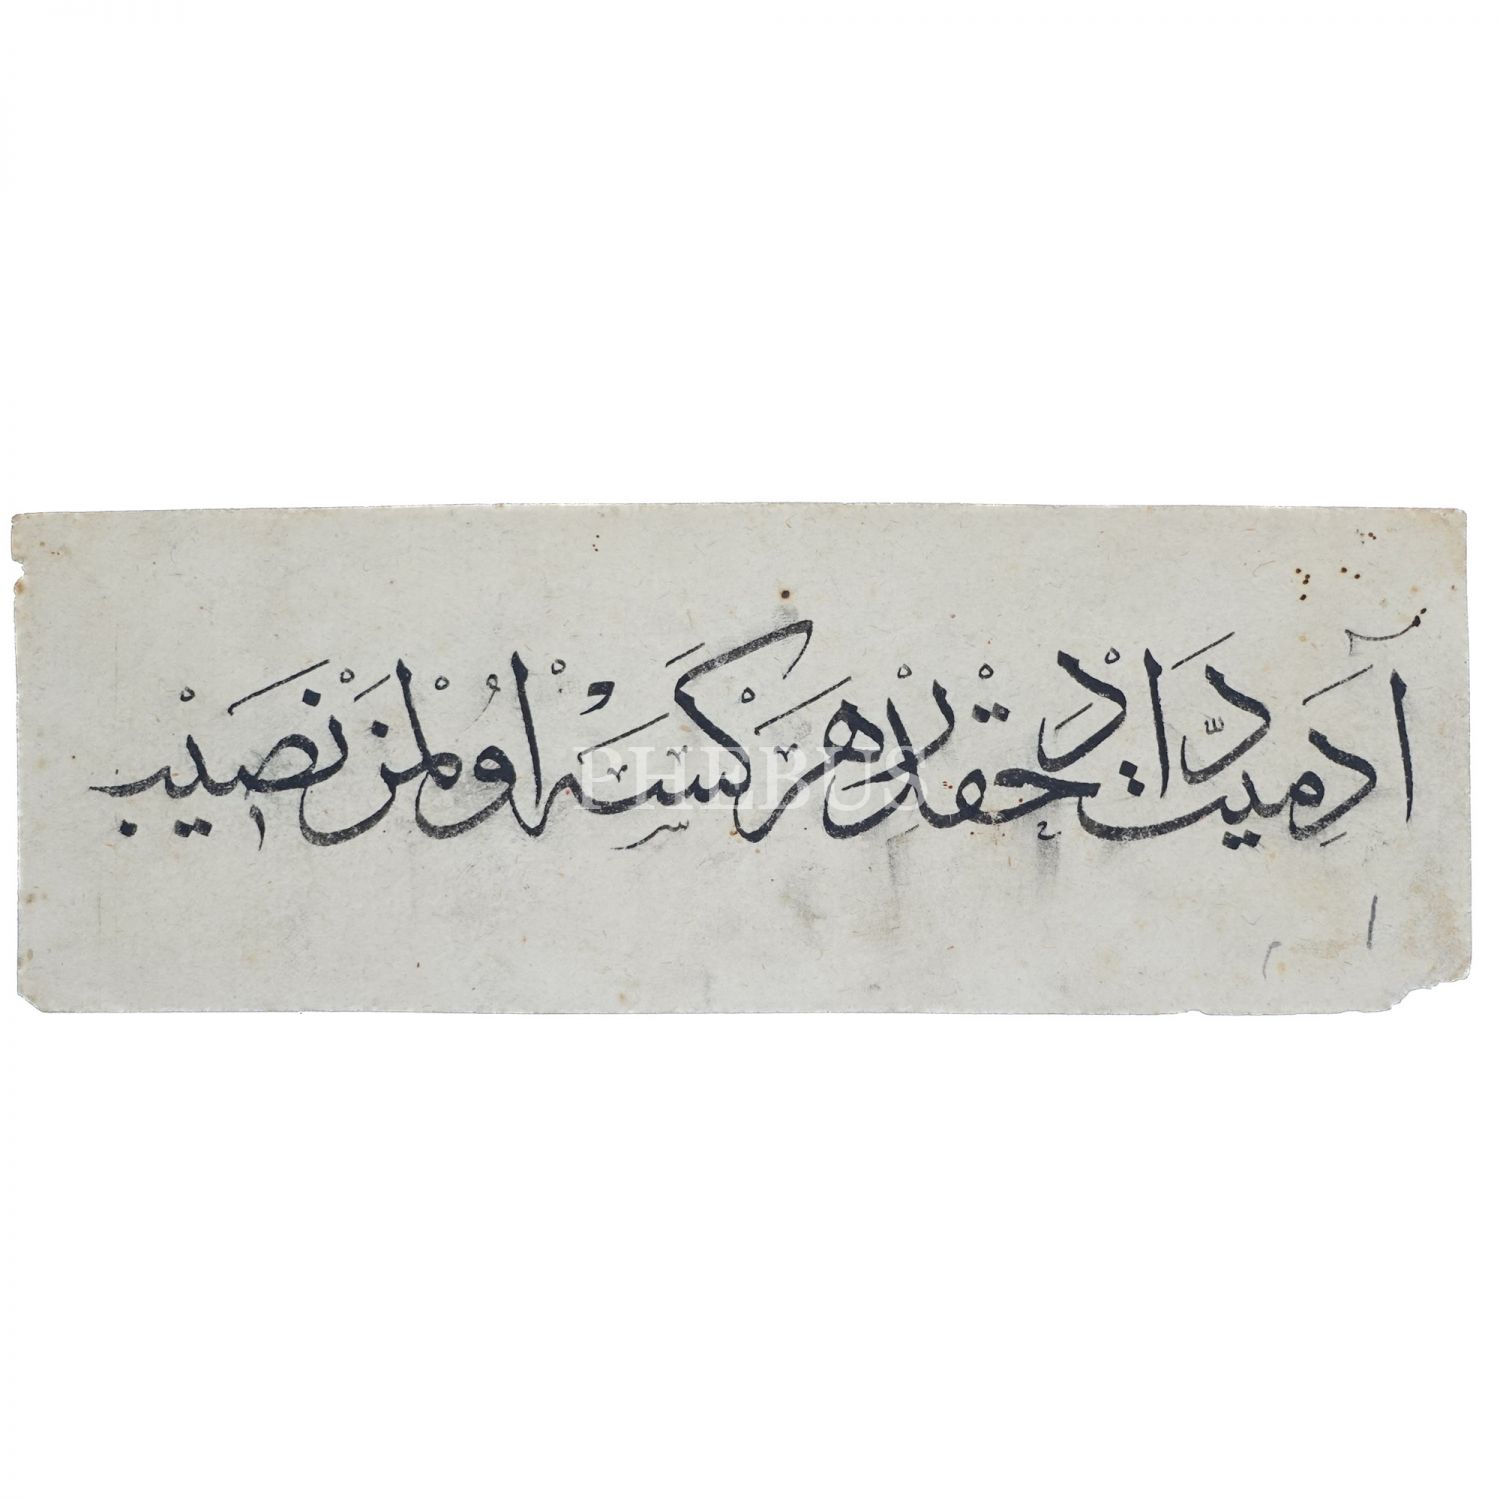 آدميت داد حقدر هر كسه اولمز نصيب
PHEBUS